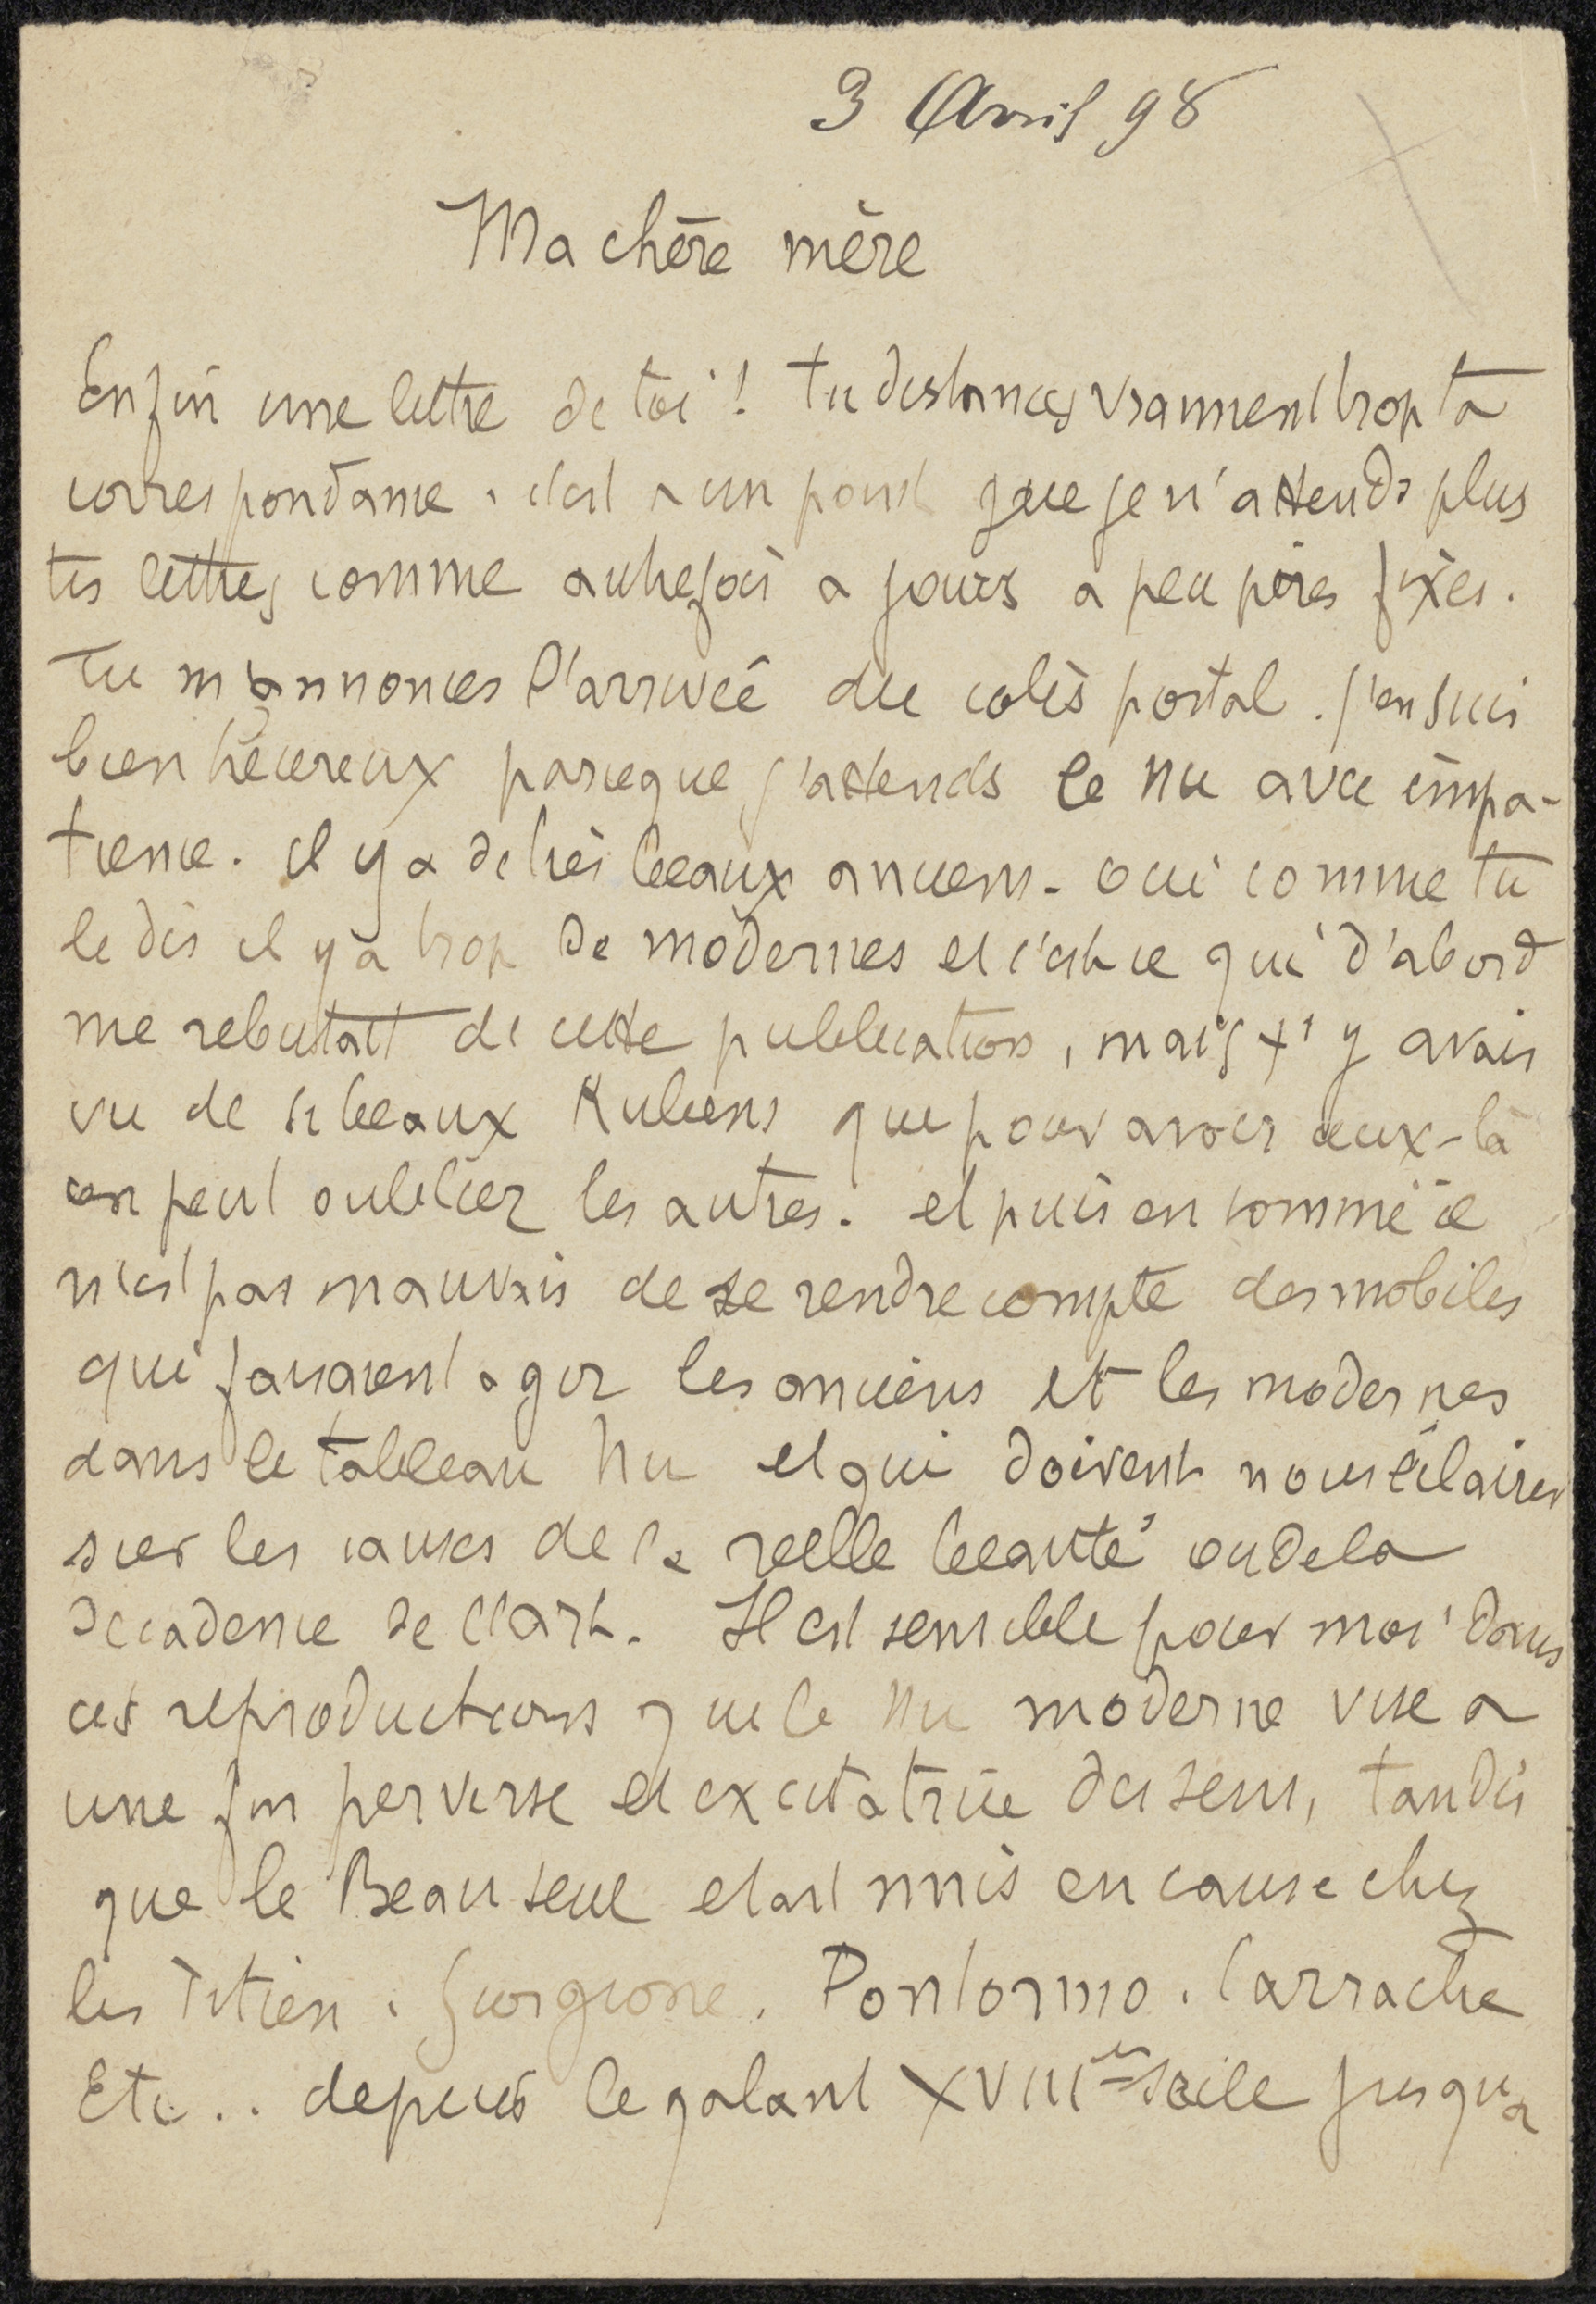 3 Avril 98
Ma chère mère
Enfin une lettre de toi ! tu distances vraiment trop ta
correspondance. c'est a un point que je n'attends plus
tes lettres comme autrefois a jours a peu près fixes.
Tu m'annonces l'arrivée du colis postal. j'en suis
bien heureux parceque j'attends le nu avec impa-
tience. il y a de très beaux anciens. oui comme tu
le dis il y a trop de modernes et c'est ce qui d'abord
me rebutait de cette publication, mais j'y avais
vu de si beaux Rubens que pour avoir ceux-là
on peut oublier les autres. et puis en somme il
n'est pas mauvais de se rendre compte des mobiles
qui faisaient agir les anciens et les modernes
dans le tableau nu et qui doivent nous éclairer
sur les causes de la réelle beauté ou de la
décadence de l'art. Il est sensible pour moi dans
ces reproductions que le nu moderne vise a
une fin perverse et excitatrice des sens, tandis
que le Beau seul etait mis en cause chez
les Titien. Giorgione. Pontormo. Carrache
Etc.. depuis le galant XVIIIe siècle jusqu'a